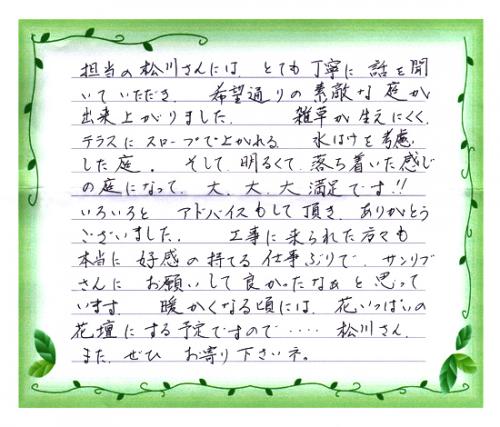 担当の松川さんには、とても丁寧に話を聞
いていただき、希望通りの素敵な庭が
出来上がりました。 雑草が生えにくく、
テラスにスロープで上がれる、水はけを考慮
した庭。そして、明るくて、落ち着いた感じ
の庭になって、大、大、大満足です!!
いろいろと アドバイスもして頂き、ありがとう
ございました。 工事に来られた方々も
本当に 好感の持てる仕事ぶりで、サンリブ
さんに お願いして良かったなぁと思って
います。 暖かくなる頃には、花いっぱいの
花壇にする予定ですので‥‥ 松川さん、
また、ぜひ お寄り下さいネ。